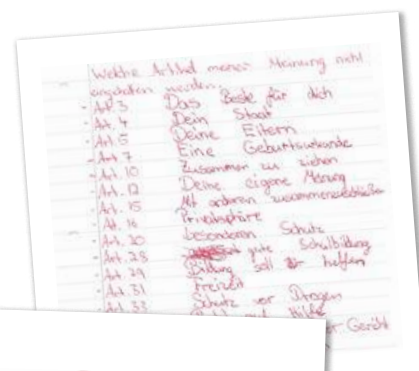 Welche Artikel meiner Meinung nicht
eingehalten werden:
- Art. 3 Das Beste für dich
- Art. 4 Dein Staat
- Art. 5 Deine Eltern
- Art. 7 Eine Geburtsurkunde
- Art. 10 Zusammen zu ziehen
- Art. 12 Deine eigene Meinung
- Art. 15 Mit anderen zusammenschließen
- Art. 16 Privatsphäre
- Art. 20 besonderen Schutz
- Art. 28 gute Schulbildung
- Art. 29 Bildung soll dir helfen
- Art. 31 Freizeit
- Art. 33 Schutz vor Drogen
Hilfe
Gericht